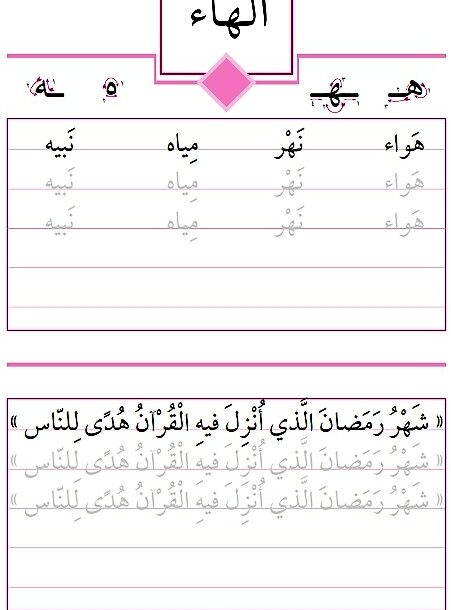 الهاء
هـ ـهـ ه ـه
هَواء نَهْر مِياه نَبيه
هَواء نَهْر مِياه نَبيه
هَواء نَهْر مِياه نَبيه
« شَهْرُ رَمَضانَ الَّذي أُنْزِلَ فيهِ الْقُرْآنُ هُدًى لِلنّاس »
« شَهْرُ رَمَضانَ الَّذي أُنْزِلَ فيهِ الْقُرْآنُ هُدًى لِلنّاس »
« شَهْرُ رَمَضانَ الَّذي أُنْزِلَ فيهِ الْقُرْآنُ هُدًى لِلنّاس »